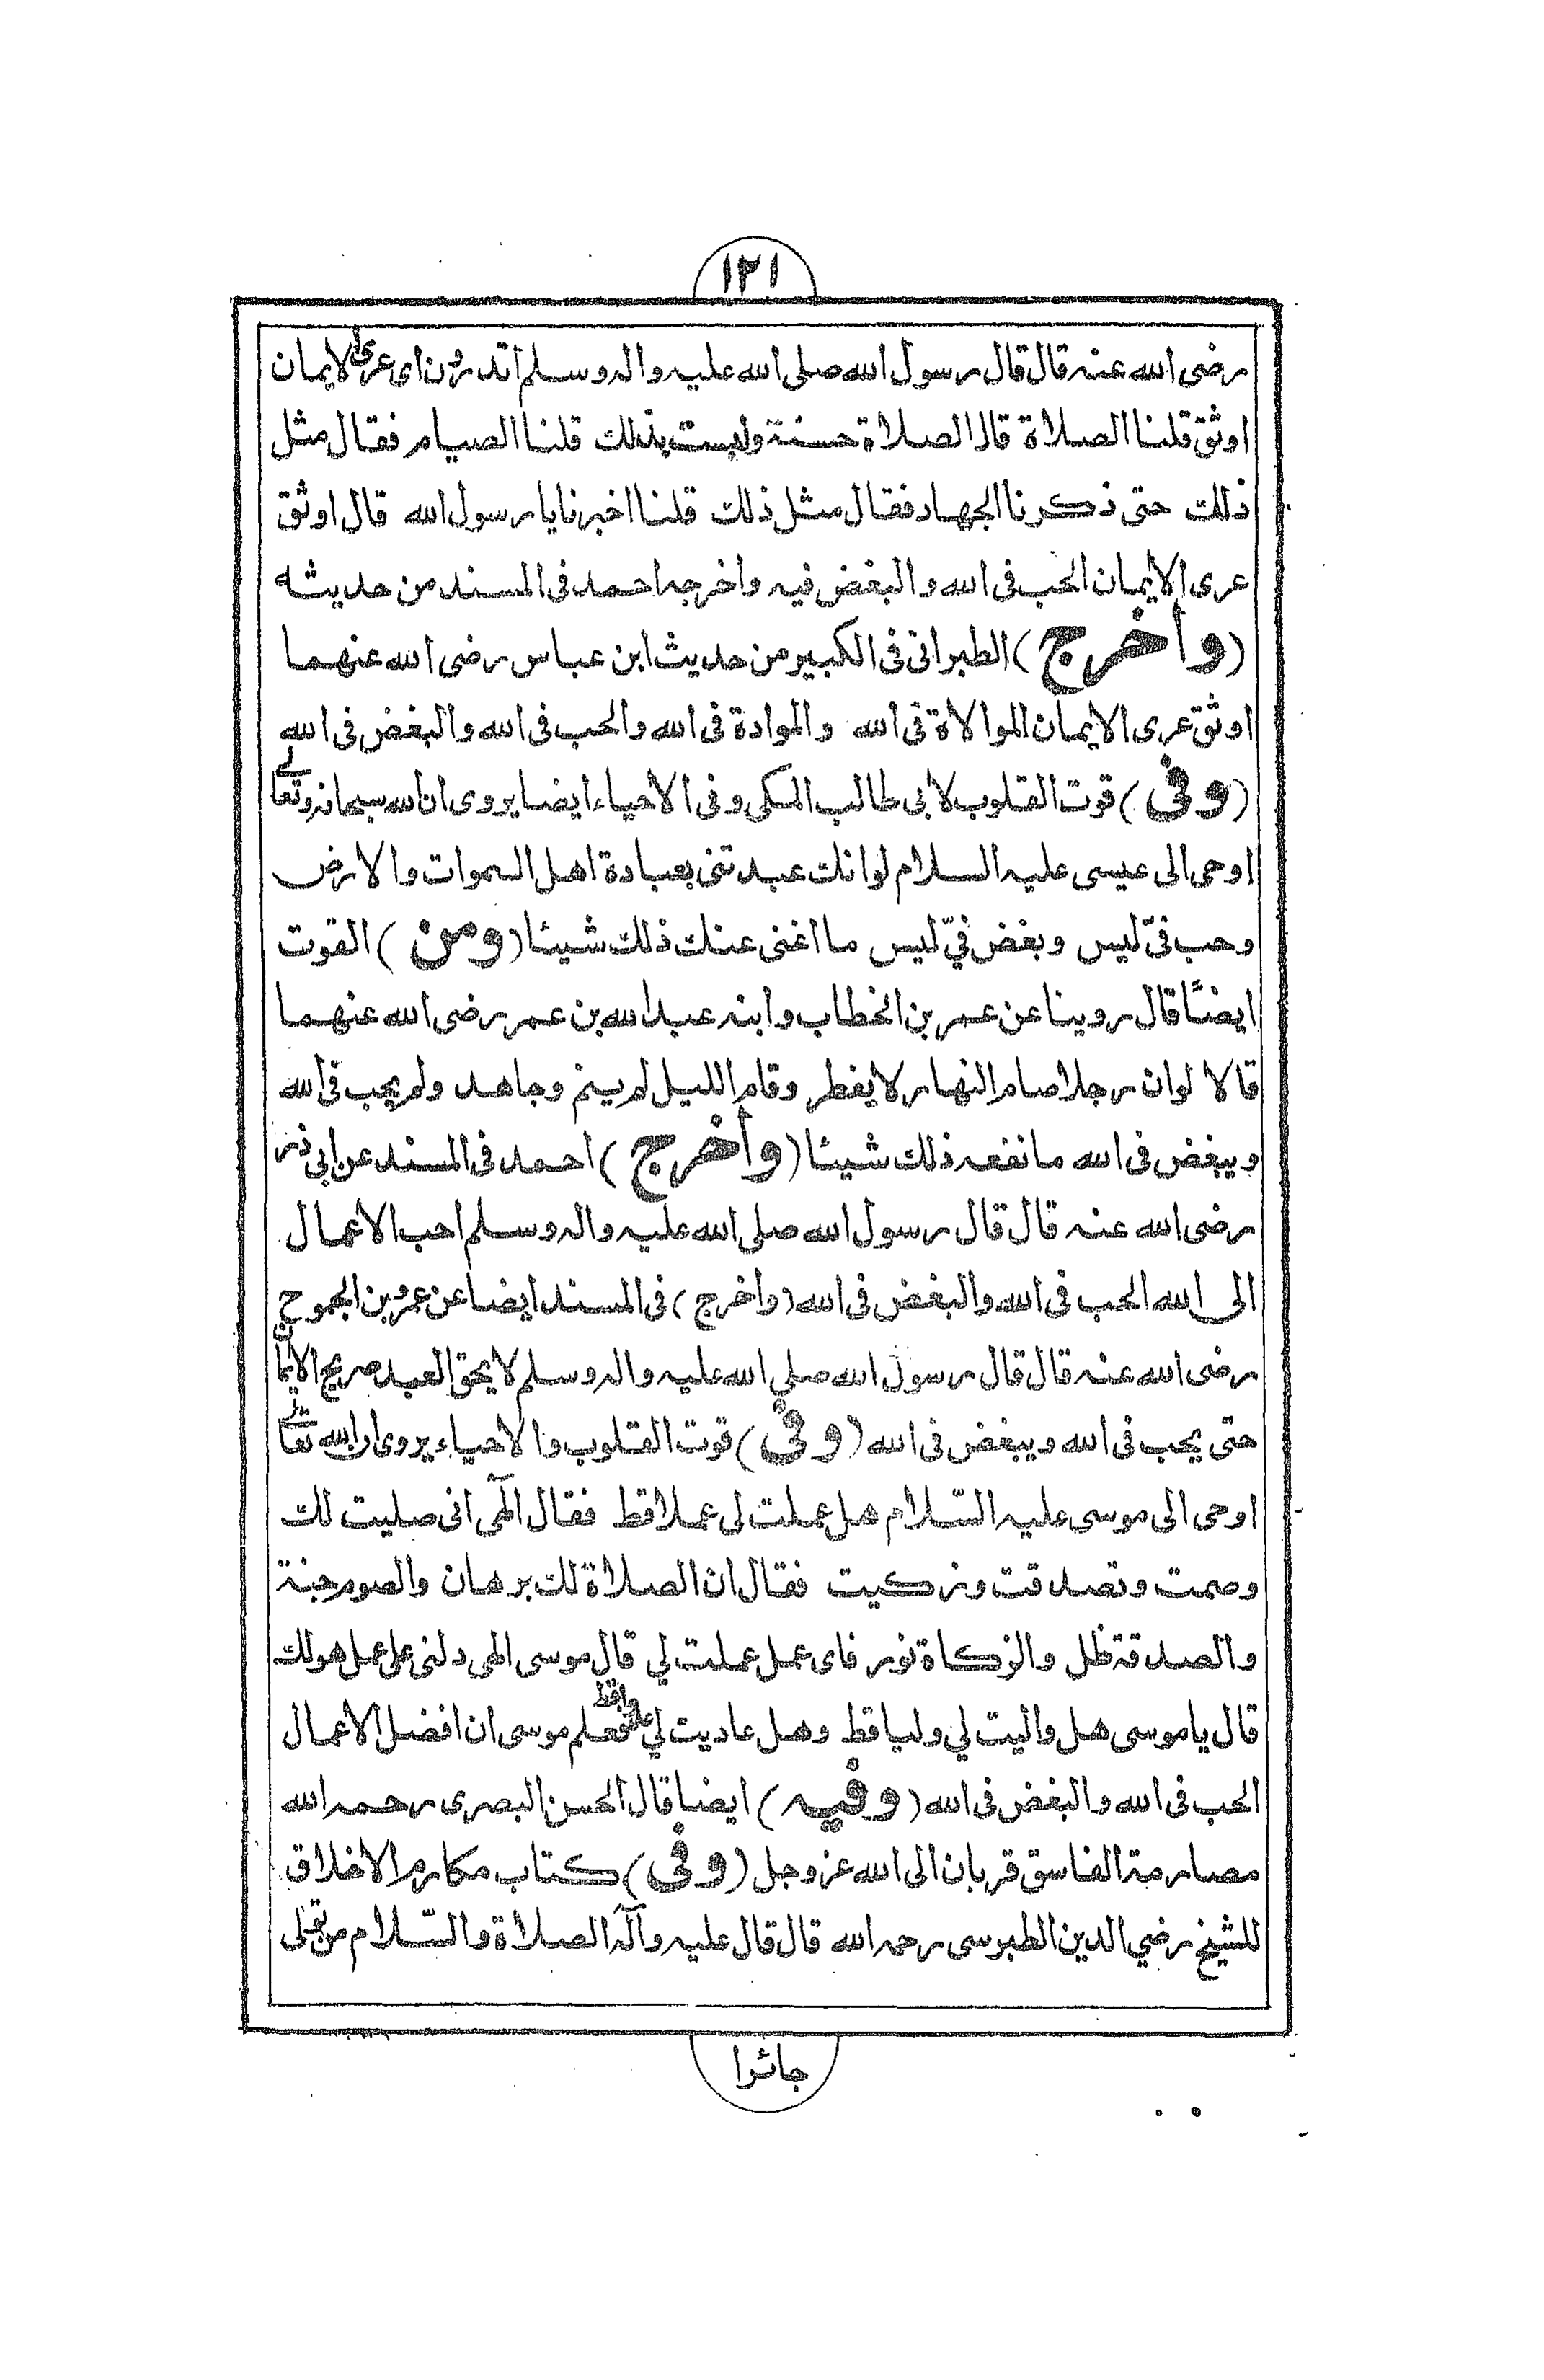 ١٢١
رضى الله عنه قال قال رسول الله صلى الله عليه واله وسلم اتدرون اى عرى الايمان
اوثق قلنا الصلاة قال الصلاة حسنة وليست بذلك قلنا الصيام فقال مثل
ذلك حتى ذكرنا الجهاد فقال مثل ذلك قلنا اخبرنا يا رسول الله قال اوثق
عرى الايمان الحب فى الله والبغض فيه واخرجه احمد فى المسند من حديثه
(وأخرج) الطبرانى فى الكبير من حديث ابن عباس رضى الله عنهما
اوثق عرى الايمان الموالاة فى الله والموادة فى الله والحب فى الله والبغض فى الله
(وفى) قوت القلوب لابى طالب المكى وفى الاحياء ايضا يروى ان الله سبحانه وتعالى
اوحى الى عيسى عليه السلام لو انك عبدتنى بعبادة اهل السموات والارض
وحب فىّ ليس وبغض فيّ ليس ما اغنى عنك ذلك شيئا (ومن) القوت
ايضًا قال روينا عن عمر بن الخطاب وابنه عبد الله بن عمر رضى الله عنهما
قالا لو ان رجلا صام النهار لا يفطر وقام الليل لم ينم وجاهد ولم يحب فى الله
ويبغض فى الله ما نفعه ذلك شيئا (وأخرج) احمد فى المسند عن ابي ذر
رضى الله عنه قال قال رسول الله صلى الله عليه واله وسلم احب الاعمال
الى الله الحب فى الله والبغض فى الله (وأخرج) فى المسند ايضا عن عمرو بن الجموح
رضى الله عنه قال قال رسول الله صلي الله عليه واله وسلم لا يحق العبد صريح الايمان
حتى يحب فى الله ويبغض فى الله (وفى) قوت القلوب والاحياء يروى ان الله تعالى
اوحى الى موسى عليه السّلام هل عملت لى عملا قط فقال الٓهى انى صليت لك
وصمت وتصدقت وزكيت فقال ان الصلاة لك برهان والصوم جنة
والصدقة ظل والزكاة نور فاى عمل عملت لي قال موسى الهى دلنى على عمل هو لك
قال يا موسى هل واليت لي وليا قط وهل عاديت لي عدوا قط فعلم موسى ان افضل الاعمال
الحب فى الله والبغض فى الله (وفيه) ايضا قال الحسن البصرى رحمه الله
مصارمة الفاسق قربان الى الله عز وجل (وفى) كتاب مكارم الاخلاق
للشيخ رضي الدين الطبرسى رحمه الله قال قال عليه وآله الصلاة والسّلام من تولى
جائرا